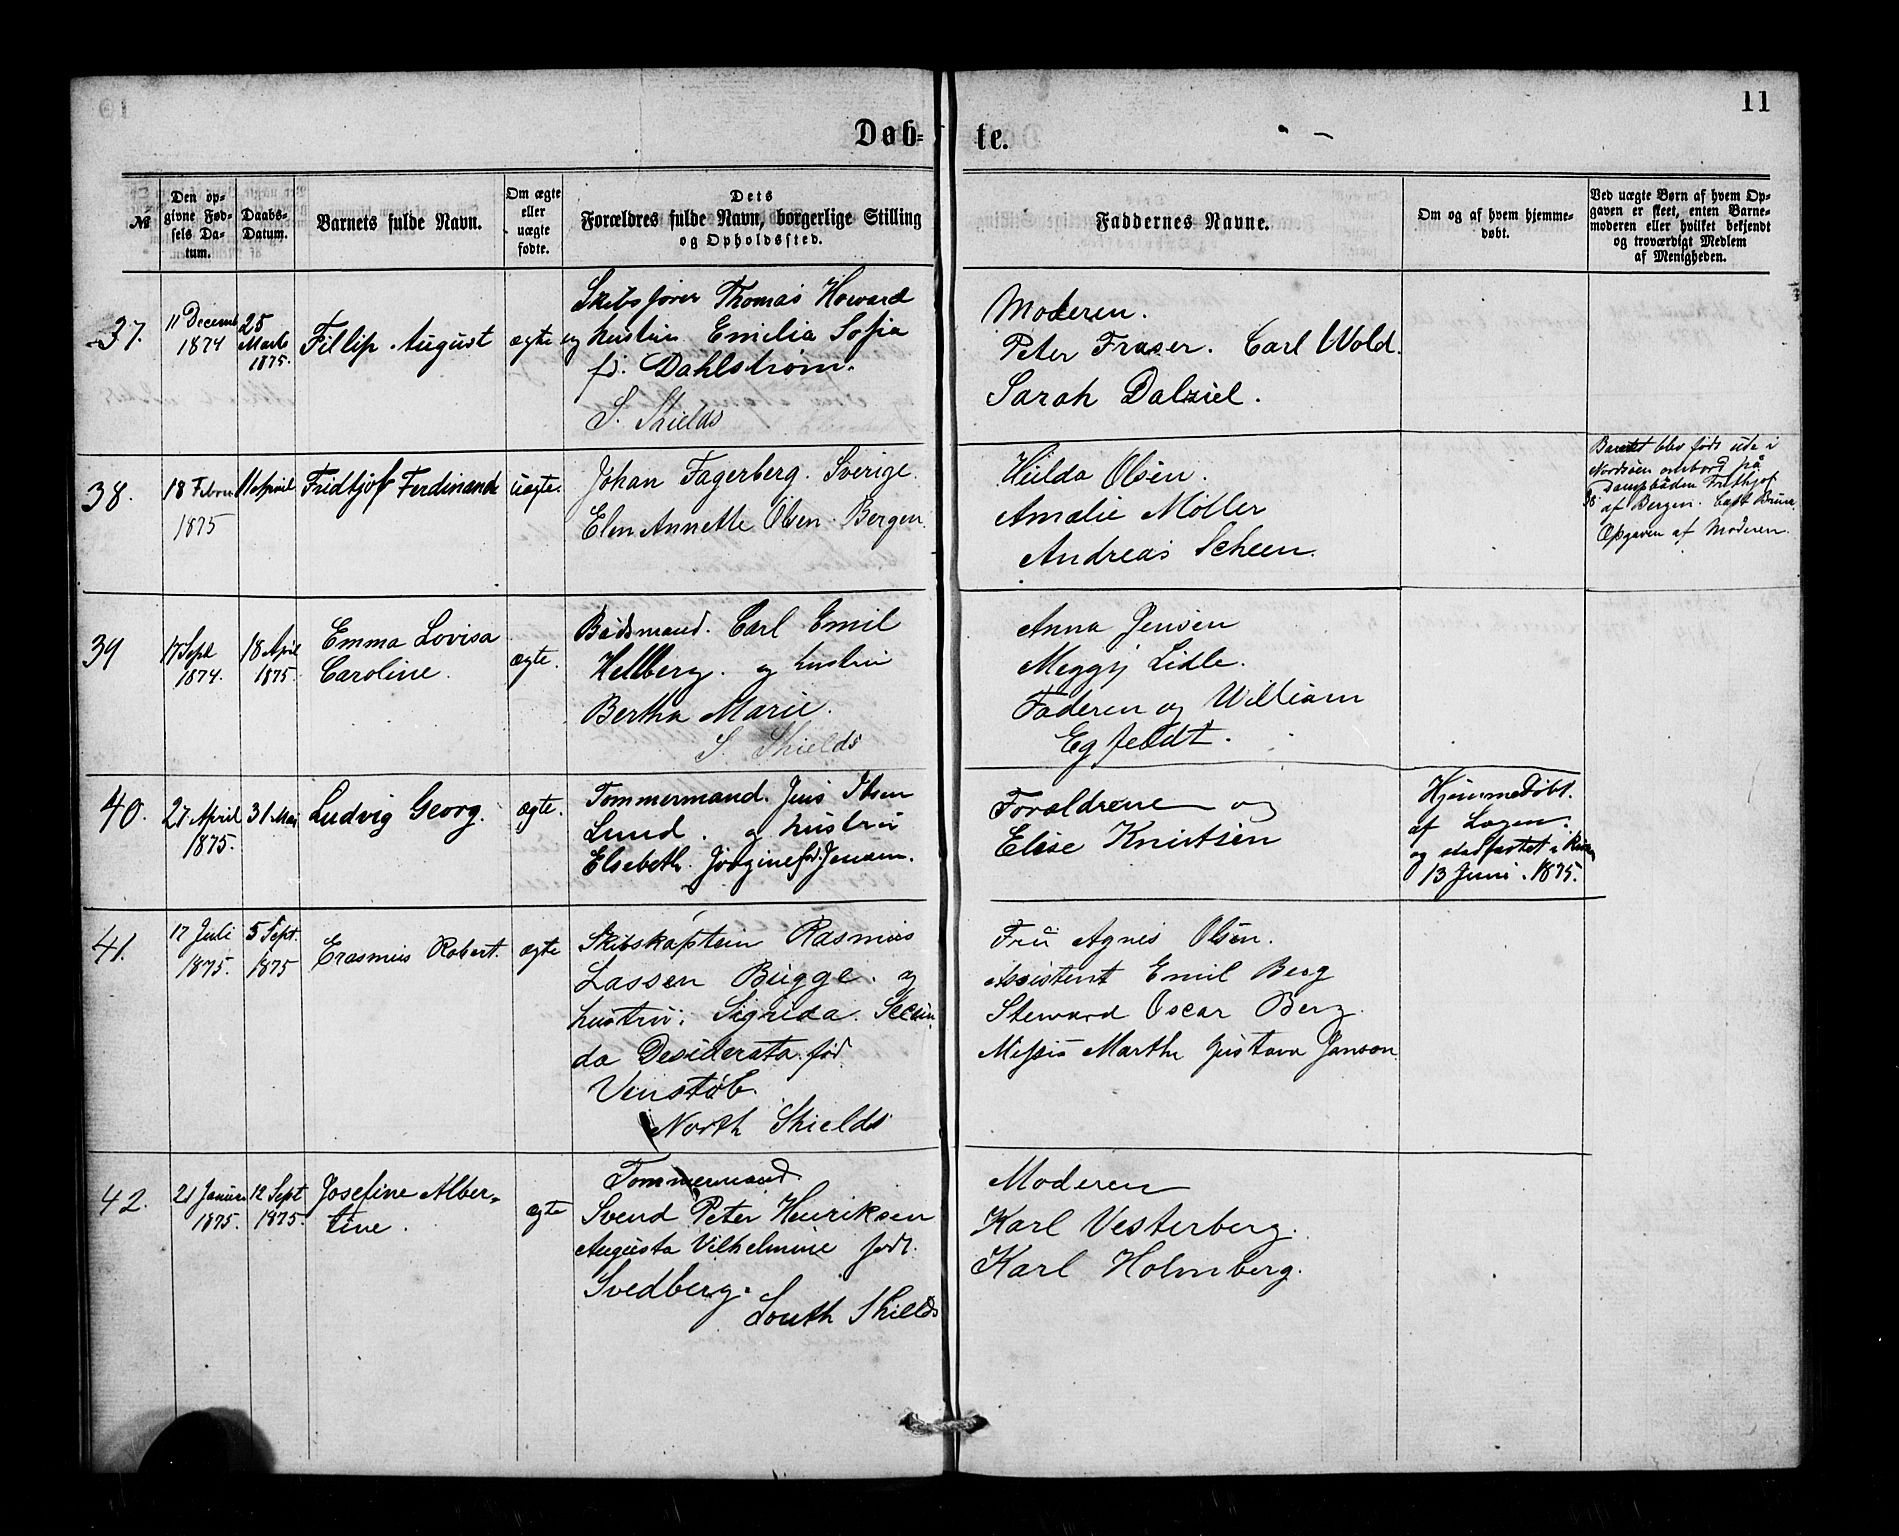 11
Døb- te.
№
Den op-
givne Fød-
sels Da-
tum.
Daabs-
Datum.
Barnets fulde Navn.
Om ægte
eller
uægte
fødte.
Dets
Forældres fulde Navn, borgerlige Stilling
og Opholdssted.
Faddernes Navne.
Om og af hvem hjemme-
døbt.
Ved uægte Børn af hvem Op-
gaven er skeet, enten Barne-
moderen eller hvilket bekjendt
og troværdigt Medlem
af Menigheden.
37.
11 Decemb
1874
25
Marts
1875.
Fillip August
ægte
Skibsfører Thomas Howard
og hustru Emilia Sofia
fd. Dahlstrøm.
S. Shields
Moderen.
Peter Fraser. Carl Wold.
Sarah Dalziel.
38.
18 Febru
1875
11 April
Fridtjof Ferdinand
uægte.
Johan Fagerberg. Sverige.
Elen Annette Olsen. Bergen.
Hilda Olsen.
Amalie Møller
Andreas Scheen.
Barnet blev født ude i
Nordsøen ombord på
Dampbåden Frithjof
af Bergen. Capt Bruun.
Opgaven af Moderen.
39
17 Sept
1874.
18 April
1875.
Emma Lovisa
Caroline.
ægte.
Bådsmand. Carl Emil
Hellberg. og hustru
Bertha Marie.
S. Shields
Anna Jensen
Meggy Lidle.
Faderen og William
Egfeldt.
40.
27 April
1875.
31 Mai
Ludvig Georg.
ægte.
Tømmermand. Jens Ibsen
Lund. og hustru
Elsebeth. Jørgine fød. Jensen.
Forældrene og
Elise Knutsen
Hjemmedøbt.
af Lægen.
og stadfæstet i Kirken
13 Juni. 1875.
41.
17 Juli
1875.
5 Sept.
1875
Erasmus Robert.
ægte
Skibskaptein Rasmus
Lassen Bugge. og
hustru. Sigrida. Secun
da Desiderata. fød
Venstøb.
North Shields
Fru Agnes Olsen.
Assistent Emil Berg
Steward Oscar Berg.
Missis Marthe Gustava Janson.
42.
21 Januar
1875.
12 Sept
1875.
Josefine Alber-
tine.
ægte
Tømmermand
Svend Peter Henriksen
Augusta Vilhelmine født.
Svedberg.
South Shields
Moderen
Karl Vesterberg.
Karl Holmberg.